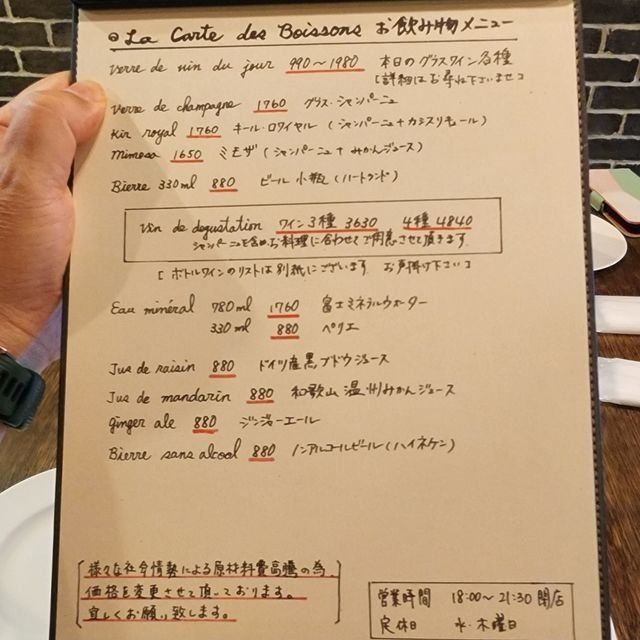 La Carte des Boissons お飲み物メニュー
Verre de vin du jour 990～1980 本日のグラスワイン各種
[詳細はお尋ね下さいませ]
Verre de champagne 1760 グラス・シャンパーニュ
Kir royal 1760 キール・ロワイヤル (シャンパーニュ+カシスリキュール)
Mimosa 1650 ミモザ (シャンパーニュ+みかんジュース)
Bierre 330ml 880 ビール小瓶 (ハートランド)
Vin de degustation ワイン3種 3630 4種 4840
シャンパーニュを含め、お料理に合わせてご用意させて頂きます
[ボトルワインのリストは別紙にございます お声掛け下さい]
Eau minéral 780ml 1760 富士ミネラルウォーター
330ml 880 ペリエ
Jus de raisin 880 ドイツ産黒ブドウジュース
Jus de mandarin 880 和歌山温州みかんジュース
ginger ale 880 ジンジャーエール
Bierre sans alcool 880 ノンアルコールビール (ハイネケン)
様々な社会情勢による原材料費高騰の為、
価格を変更させて頂いております。
宜しくお願い致します。
営業時間 18:00～21:30閉店
定休日 水・木曜日